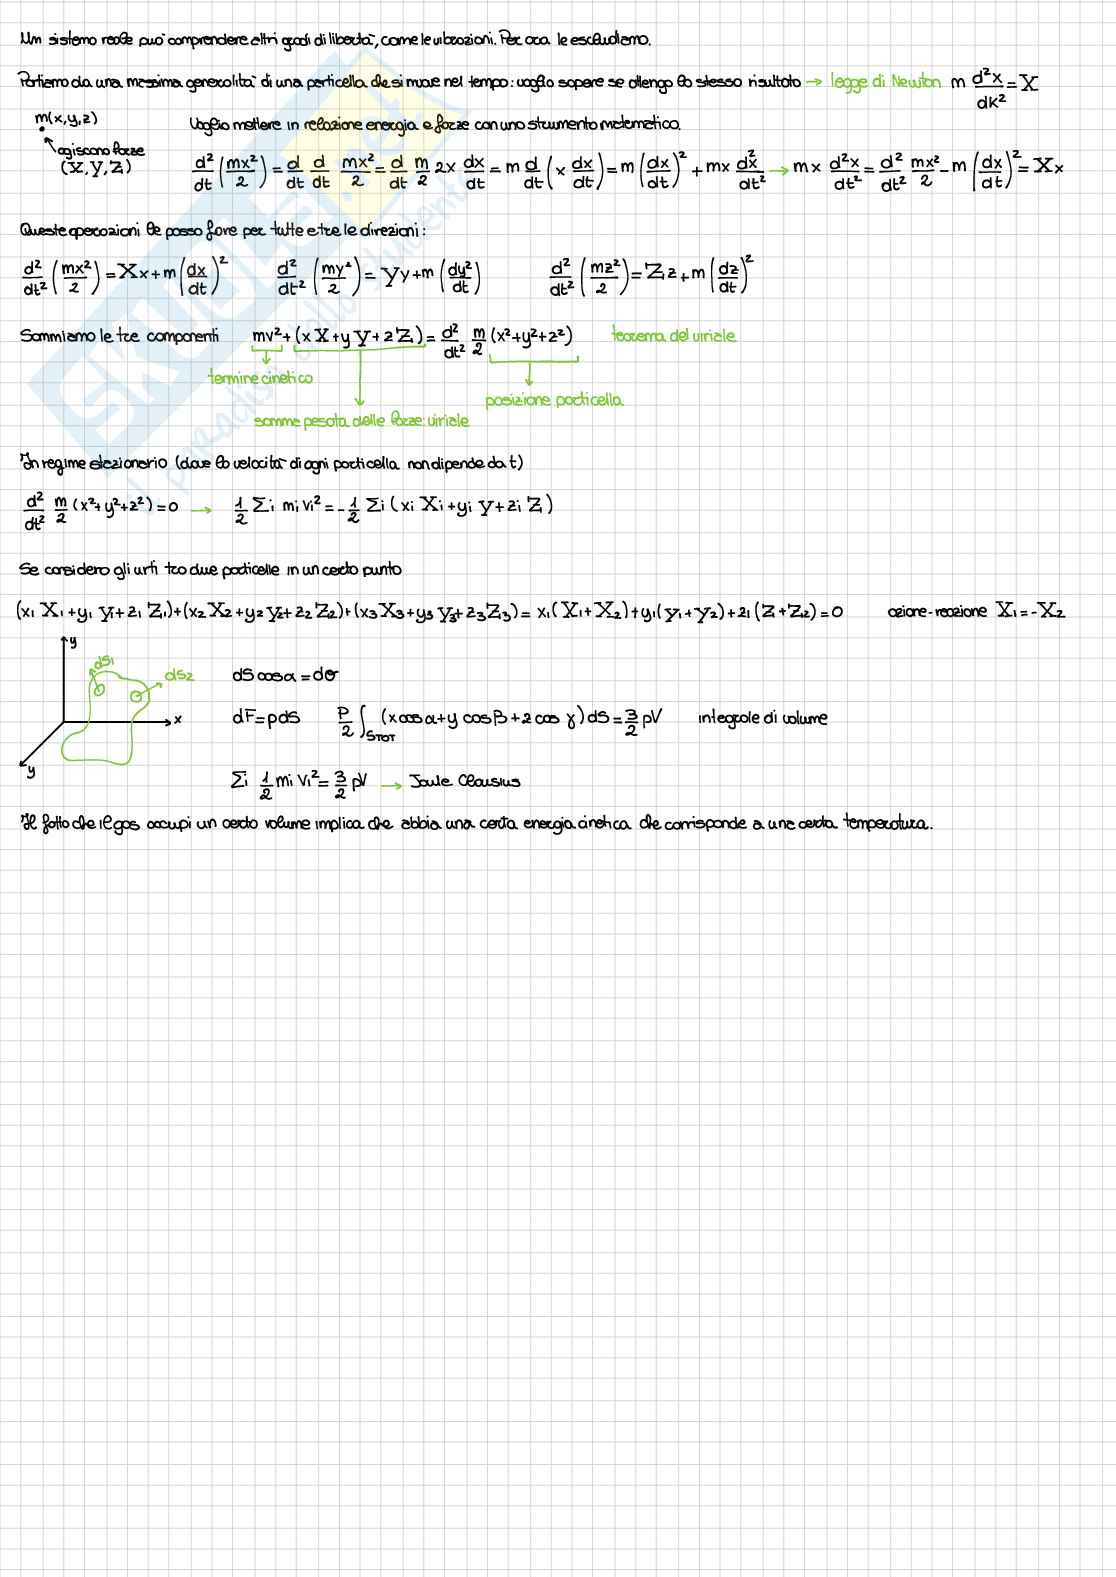 Un sistema reale può comprendere altri gradi di libertà, come le vibrazioni. Per ora le escludiamo.
Partiamo da una massima generalità di una particella che si muove nel tempo: voglio sapere se ottengo lo stesso risultato → legge di Newton m d²x/dk² = X
m(x,y,z)
Voglio mettere in relazione energia e forze con uno strumento matematico.
agiscono forze
(X,Y,Z)
d²/dt (mx²/2) = d/dt d/dt mx²/2 = d/dt m/2 2x dx/dt = m d/dt (x dx/dt) = m (dx/dt)² + mx d²x/dt² → mx d²x/dt² = d²/dt² mx²/2 - m (dx/dt)² = Xx
Queste operazioni le posso fare per tutte e tre le direzioni:
d²/dt² (mx²/2) = Xx + m (dx/dt)² d²/dt² (my²/2) = Yy + m (dy²/dt) d²/dt² (mz²/2) = Zz + m (dz/dt)²
Sommiamo le tre componenti mv² + (xX + yY + zZ) = d²/dt² m/2 (x²+y²+z²) teorema del viriale
termine cinetico
posizione particella
somma pesata delle forze: viriale
In regime stazionario (dove la velocità di ogni particella non dipende da t)
d²/dt² m/2 (x²+y²+z²) = 0 → 1/2 Σi mi vi² = - 1/2 Σi (xi Xi + yi Y + zi Z)
Se considero gli urti tra due particelle in un certo punto
(x₁X₁ + y₁Y₁ + z₁Z₁) + (x₂X₂ + y₂Y₂ + z₂Z₂) + (x₃X₃ + y₃Y₃ + z₃Z₃) = x₁(X₁+X₂) + y₁(Y₁+Y₂) + z₁(Z+Z₂) = 0 azione-reazione X₁ = -X₂
y
ds₁
ds₂
x
y
dS cosα = dσ
dF = pdS P/2 ∫STOT (x cosα + y cosβ + z cos γ) dS = 3/2 pV integrale di volume
Σi 1/2 mi Vi² = 3/2 pV → Joule Clausius
Il fatto che il gas occupi un certo volume implica che abbia una certa energia cinetica che corrisponde a una certa temperatura.
SKUOLA.net
il paradiso dello studente